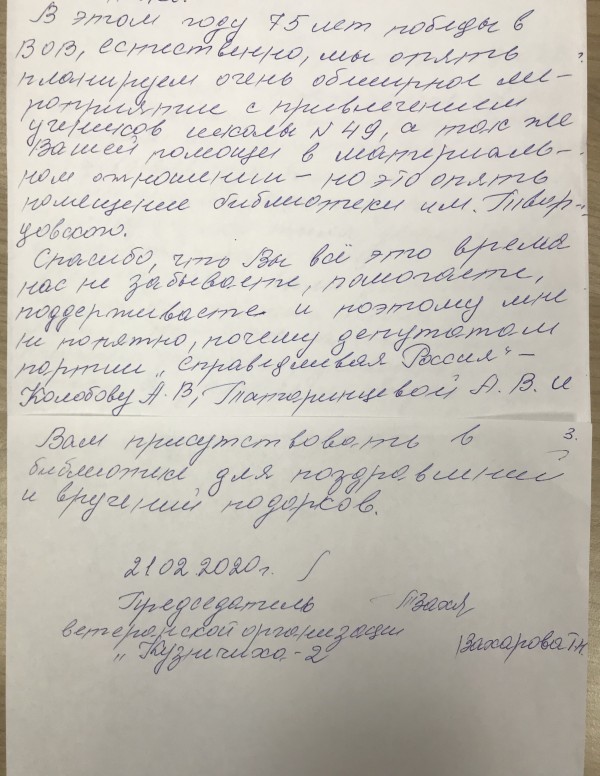 В этом году 75 лет победы в
ВОВ, естественно, мы опять
планируем очень обширное ме-
роприятие с привлечением
учеников школы N 49, а так же
Вашей помощи в материаль-
ном отношении – но это опять
помещение библиотеки им. Твар-
довского.
Спасибо, что Вы всё это время
нас не забываете, помогаете,
поддерживаете и поэтому мне
не понятно, почему депутатам
партии „Справедливая Россия" –
Колобову А.В, Татаринцевой А.В. и
3.
Вам присутствовать в
библиотеке для поздравлений
и вручений подарков.
21 02 2020г.
Председатель
ветеранской организации
„Кузнечиха-2
Захарова Т.Н.